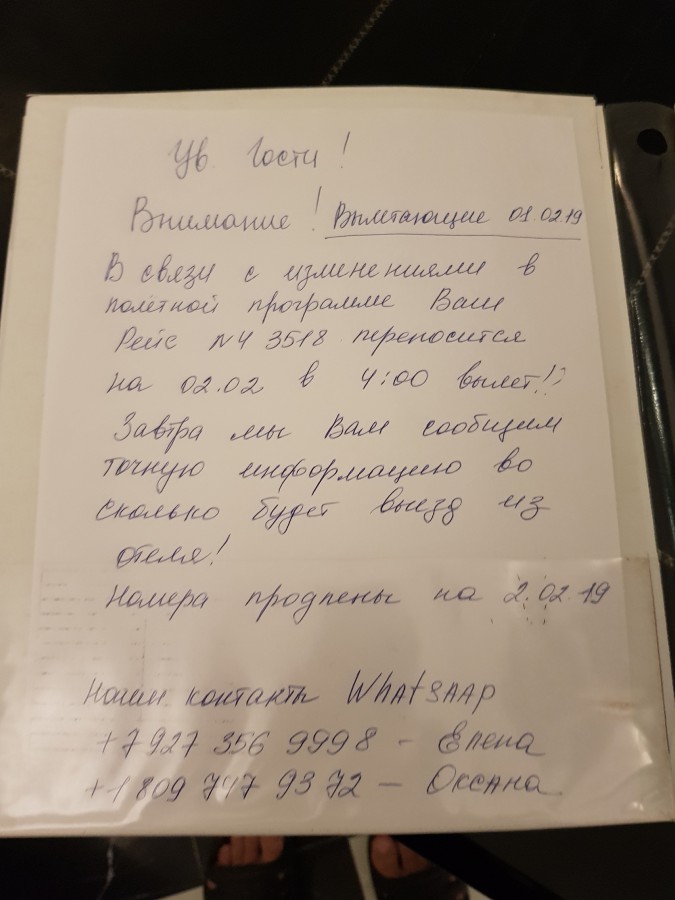 Ув. Гости!
Внимание! Вылетающие 01.02.19
В связи с изменениями в
полётной программе Ваш
Рейс N4 3518 переносится
на 02.02 в 4:00 вылет!!
Завтра мы Вам сообщим
точную информацию во
сколько будет выезд из
отеля!
Номера продлены на 2.02.19
Наши контакты WhAtsAAp
+7 927 356 9998 - Елена
+1 809 747 9372 - Оксана